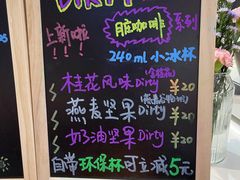 DIRTY
上新啦!!
脏咖啡 系列
240ml 小冰杯
(含桂花)
桂花风味Dirty ¥20
燕麦坚果Dirty ¥20
奶油坚果Dirty ¥20
自带环保杯可立减5元